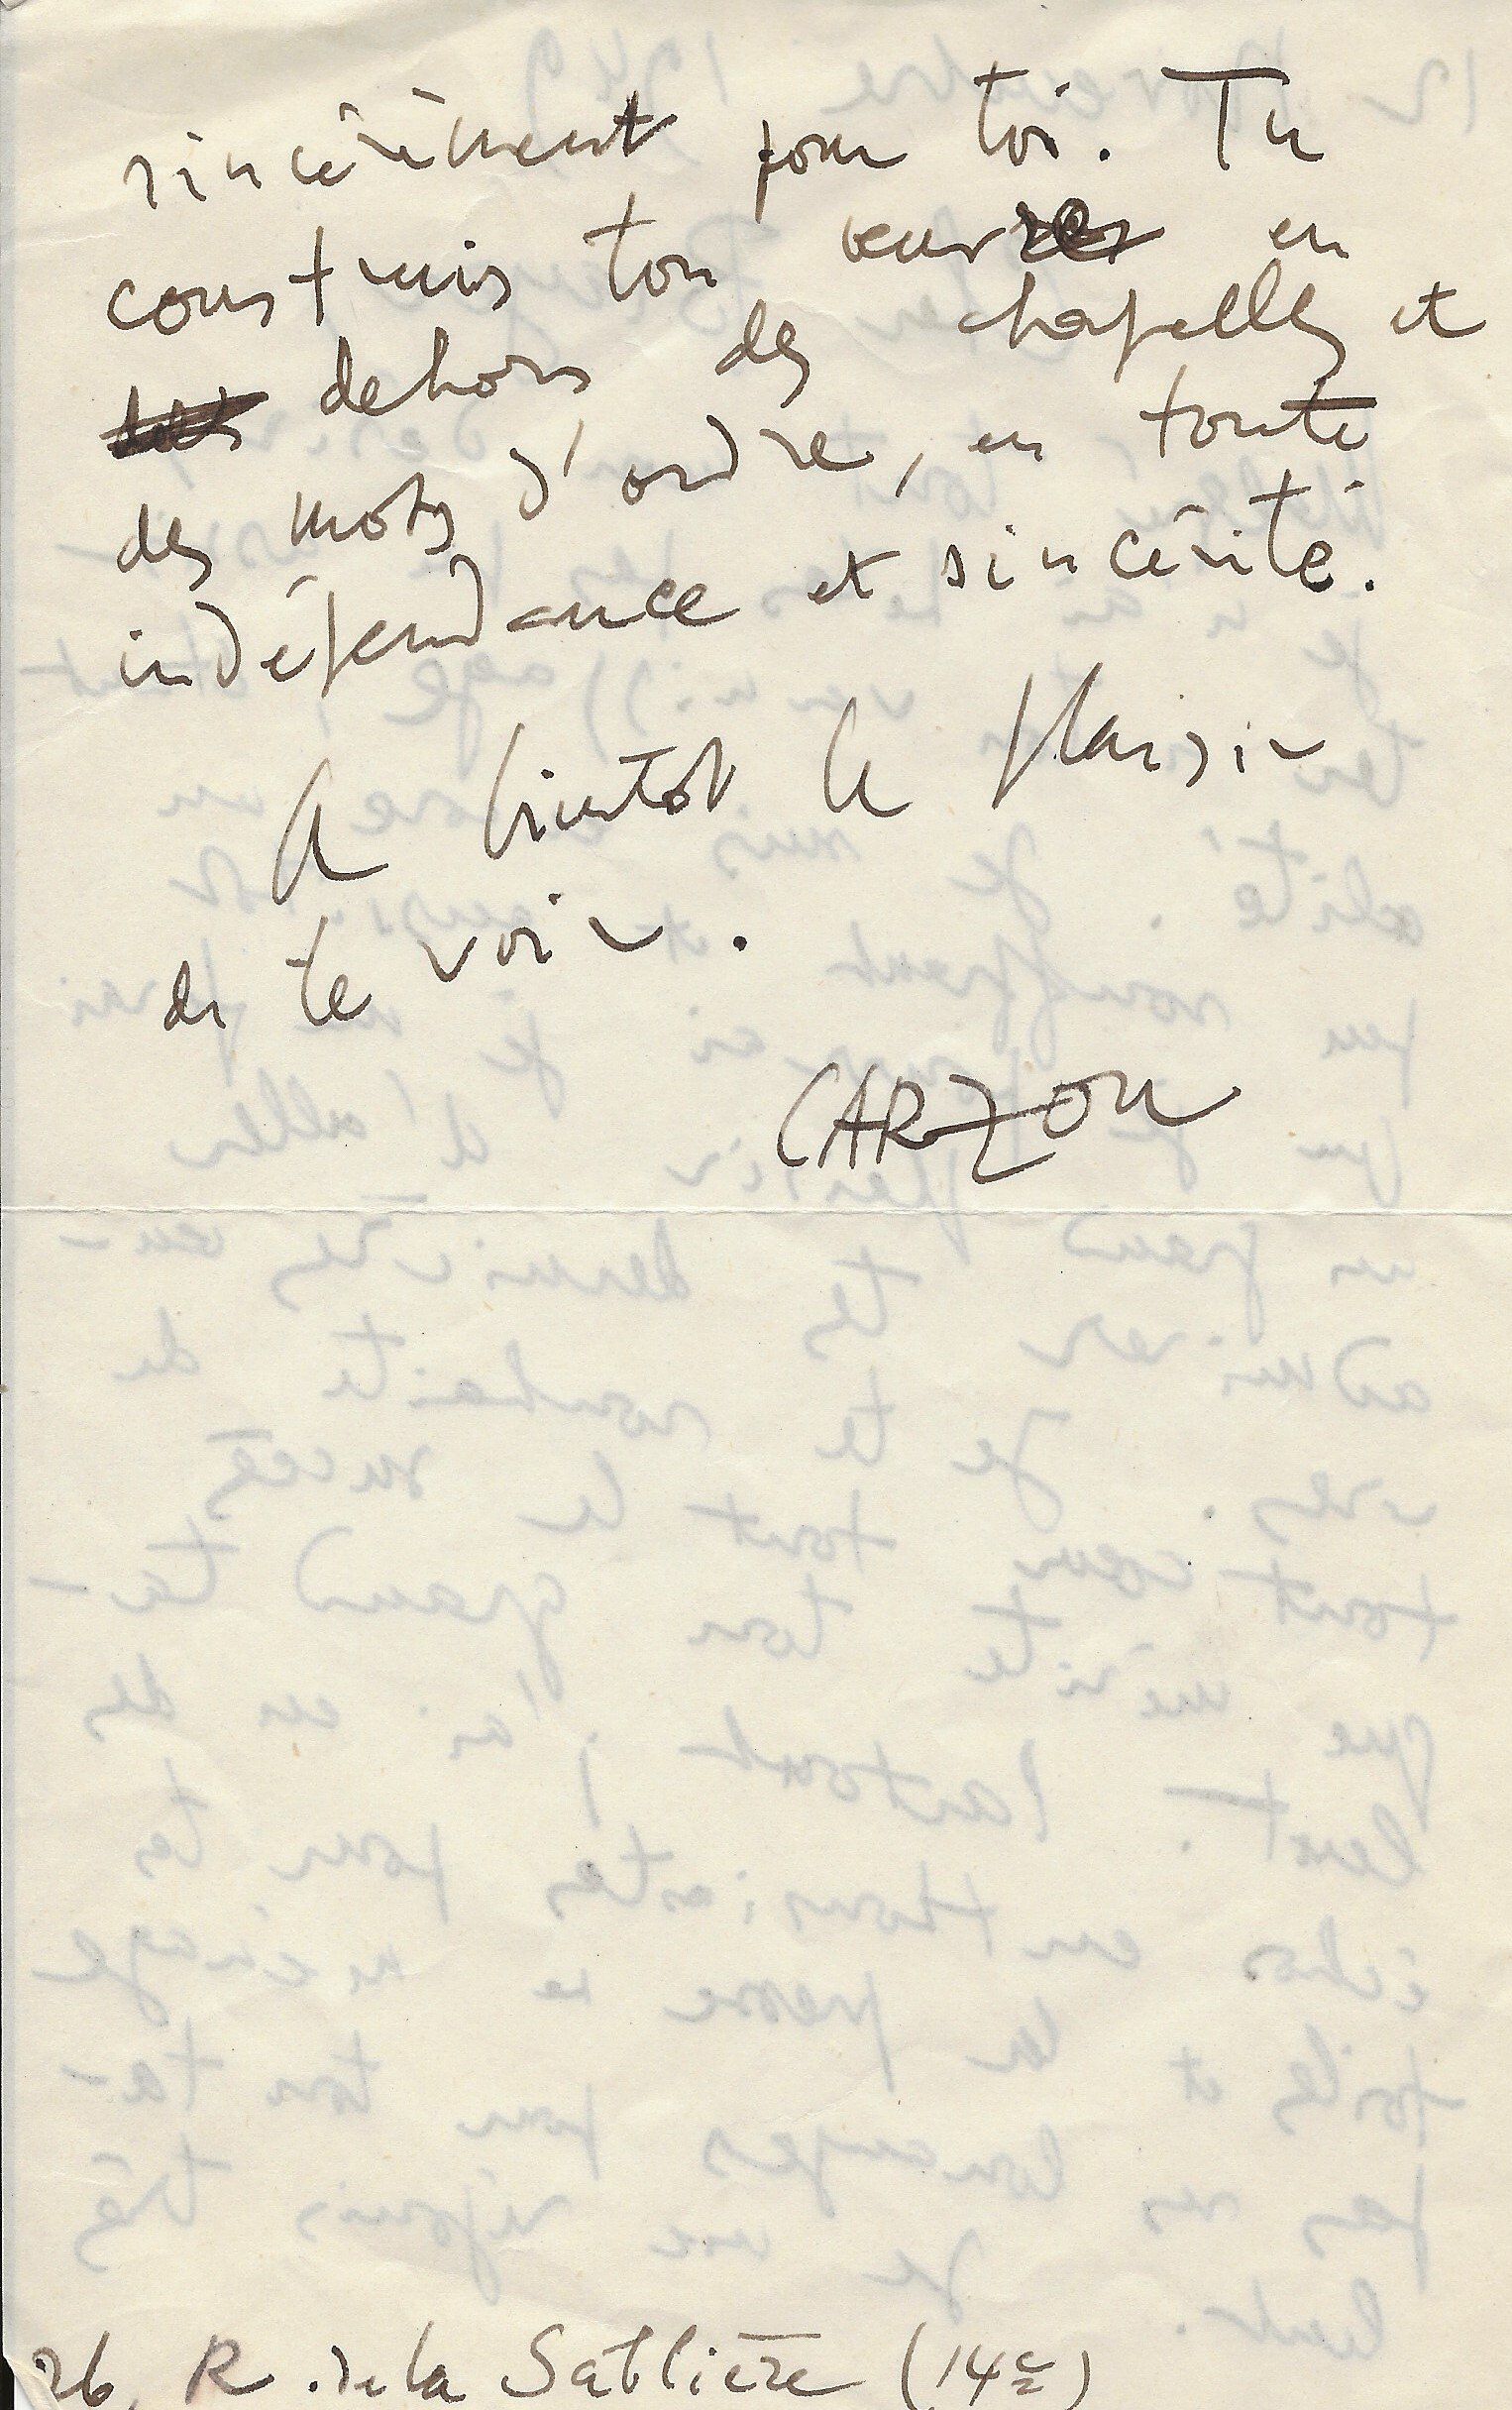 sincèrement pour toi. Tu
construis ton œuvre en
dehors des chapelles et
des mots d'ordre, en toute
indépendance et sincérité.
A bientôt le plaisir
de te voir.
CARZOU
26, R. de la Sablière (14e)